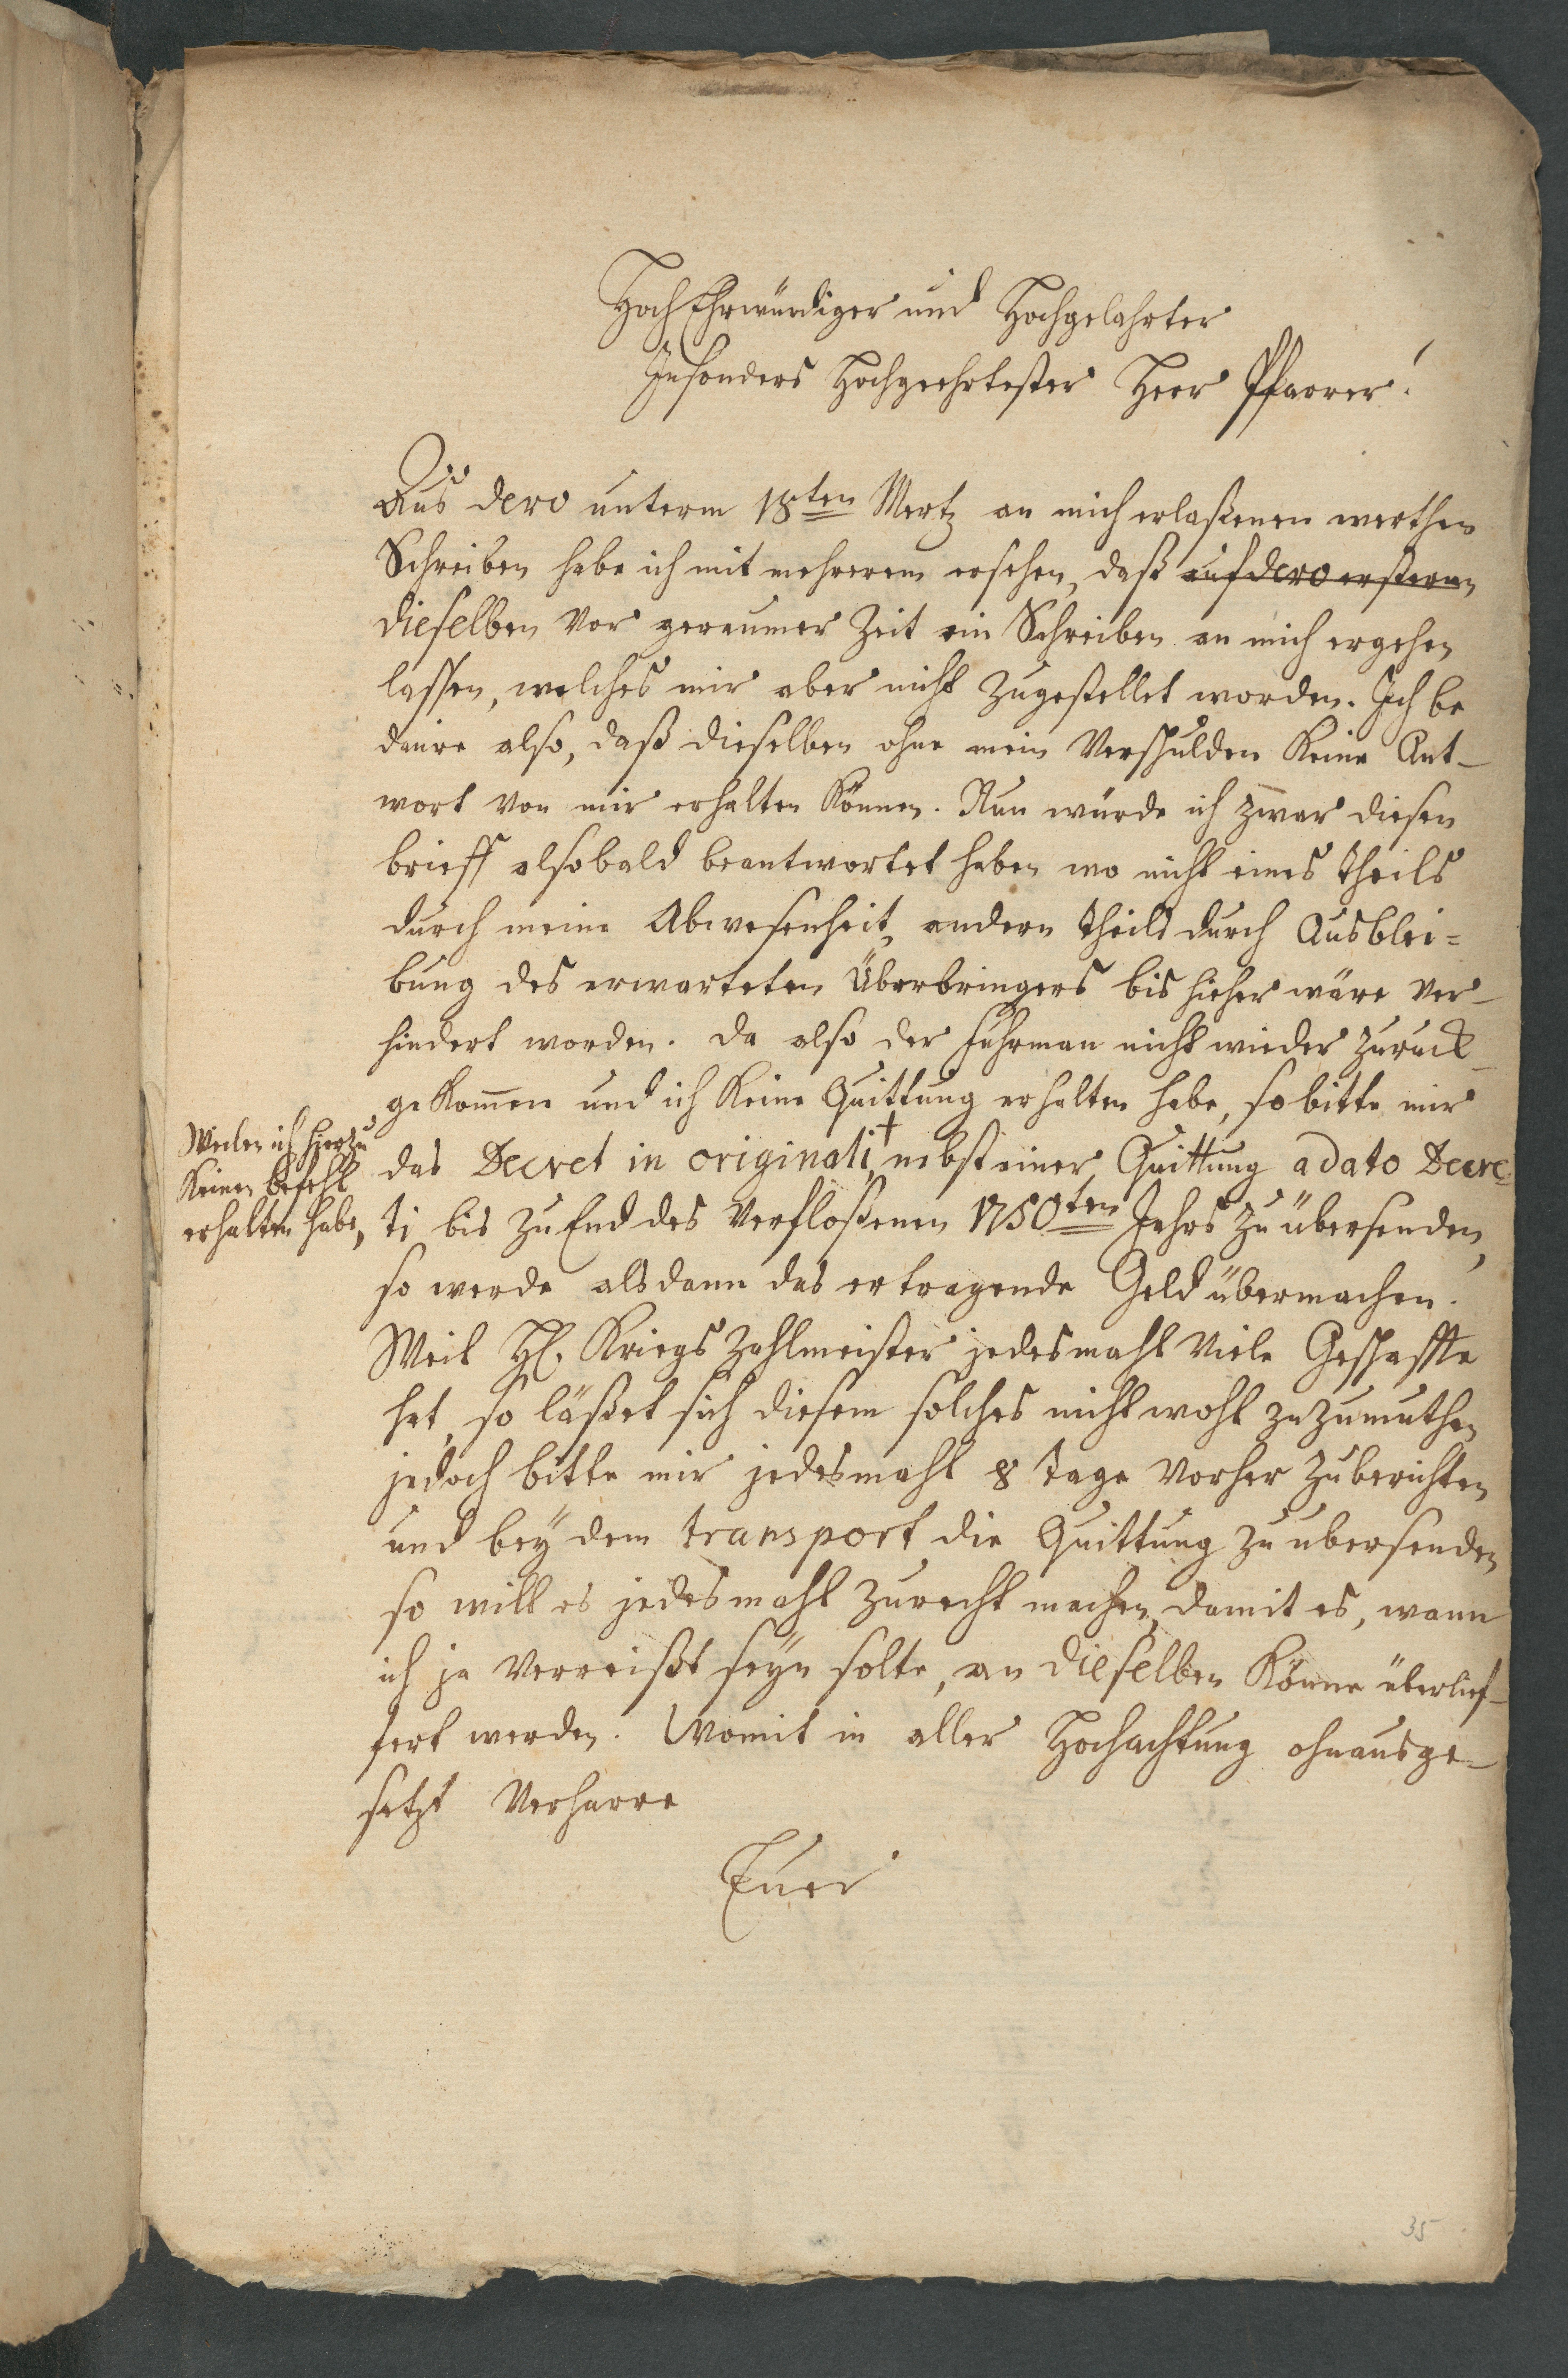 HochEhrwürdiger und Hochgelahrter
Insonders Hochgeehrtester Herr Pfarrer!
Aus dero unterm 18ten Mertz an mich erlaßenen werthen
Schreiben habe ich mit mehrerem ersehen, daß auf dero ersteren
dieselben vor geraumer Zeit ein Schreiben an mich ergehen
lassen, welches mir aber nicht zugestellet worden. Ich be
daure also, daß dieselben ohne mein Verschulden keine Ant-
wort von mir erhalten können. Nun würde ich zwar diesen
brieff alsobald beantwortet haben wo nicht eines theils
durch meine Abwesenheit, andern theils durch Ausblei=
bung des erwarteten Überbringers bis hieher wäre ver-
hindert worden. Da also der Fuhrman nicht wieder zuruck-
gekom̅en und ich keine Quittung erhalten habe, so bitte mir
das Decret in originali † nebst einer Quittung a dato Decre-
ti bis zu End des verfloßenen 1750ten Jahrs zu übersenden,
Weilen ich hierzu
keinen befehl
erhalten habe,
so werde alsdann das ertragende Geld übermachen.
Weil H. Kriegs Zahlmeister jedesmahl viele Geschaffte
hat, so läßet sich diesem solches nicht wohl zuzumuthen
jedoch bitte mir jedesmahl 8 tage vorher zu berichten
und bey dem transport die Quittung zu ubersenden
so will es jedesmahl zurecht machen, damit es, wann
ich ja verreißt seyn solte, an dieselben könne überlief-
fert werden. Womit in aller Hochachtung ohnausge-
setzt verharre
Euer
35